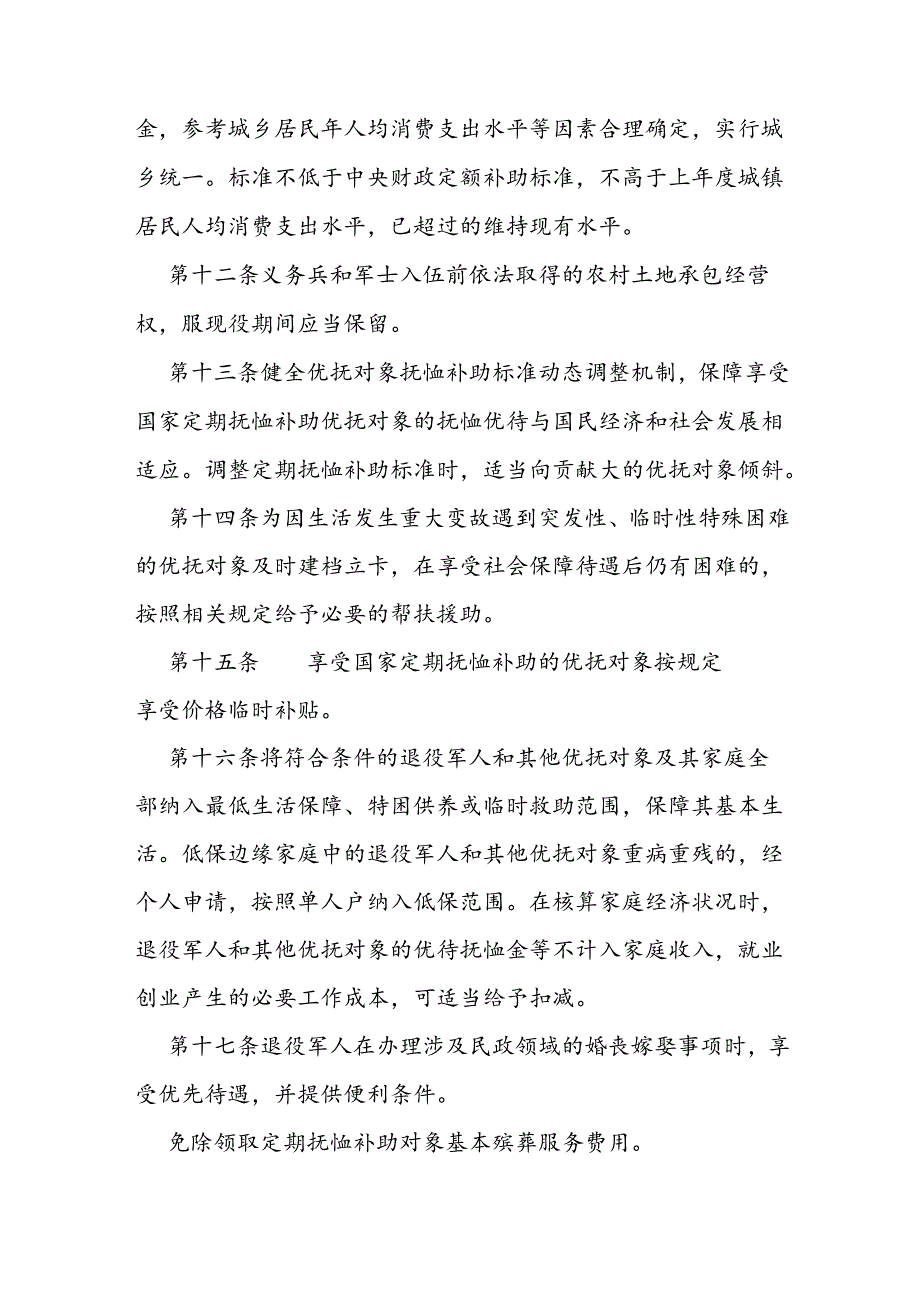 金，参考城乡居民年人均消费支出水平等因素合理确定，实行城
乡统一。标准不低于中央财政定额补助标准，不高于上年度城镇
居民人均消费支出水平，已超过的维持现有水平。
第十二条义务兵和军士入伍前依法取得的农村土地承包经营
权，服现役期间应当保留。
第十三条健全优抚对象抚恤补助标准动态调整机制，保障享受
国家定期抚恤补助优抚对象的抚恤优待与国民经济和社会发展相
适应。调整定期抚恤补助标准时，适当向贡献大的优抚对象倾斜。
第十四条为因生活发生重大变故遇到突发性、临时性特殊困难
的优抚对象及时建档立卡，在享受社会保障待遇后仍有困难的，
按照相关规定给予必要的帮扶援助。
第十五条 享受国家定期抚恤补助的优抚对象按规定
享受价格临时补贴。
第十六条将符合条件的退役军人和其他优抚对象及其家庭全
部纳入最低生活保障、特困供养或临时救助范围，保障其基本生
活。低保边缘家庭中的退役军人和其他优抚对象重病重残的，经
个人申请，按照单人户纳入低保范围。在核算家庭经济状况时，
退役军人和其他优抚对象的优待抚恤金等不计入家庭收入，就业
创业产生的必要工作成本，可适当给予扣减。
第十七条退役军人在办理涉及民政领域的婚丧嫁娶事项时，享
受优先待遇，并提供便利条件。
免除领取定期抚恤补助对象基本殡葬服务费用。